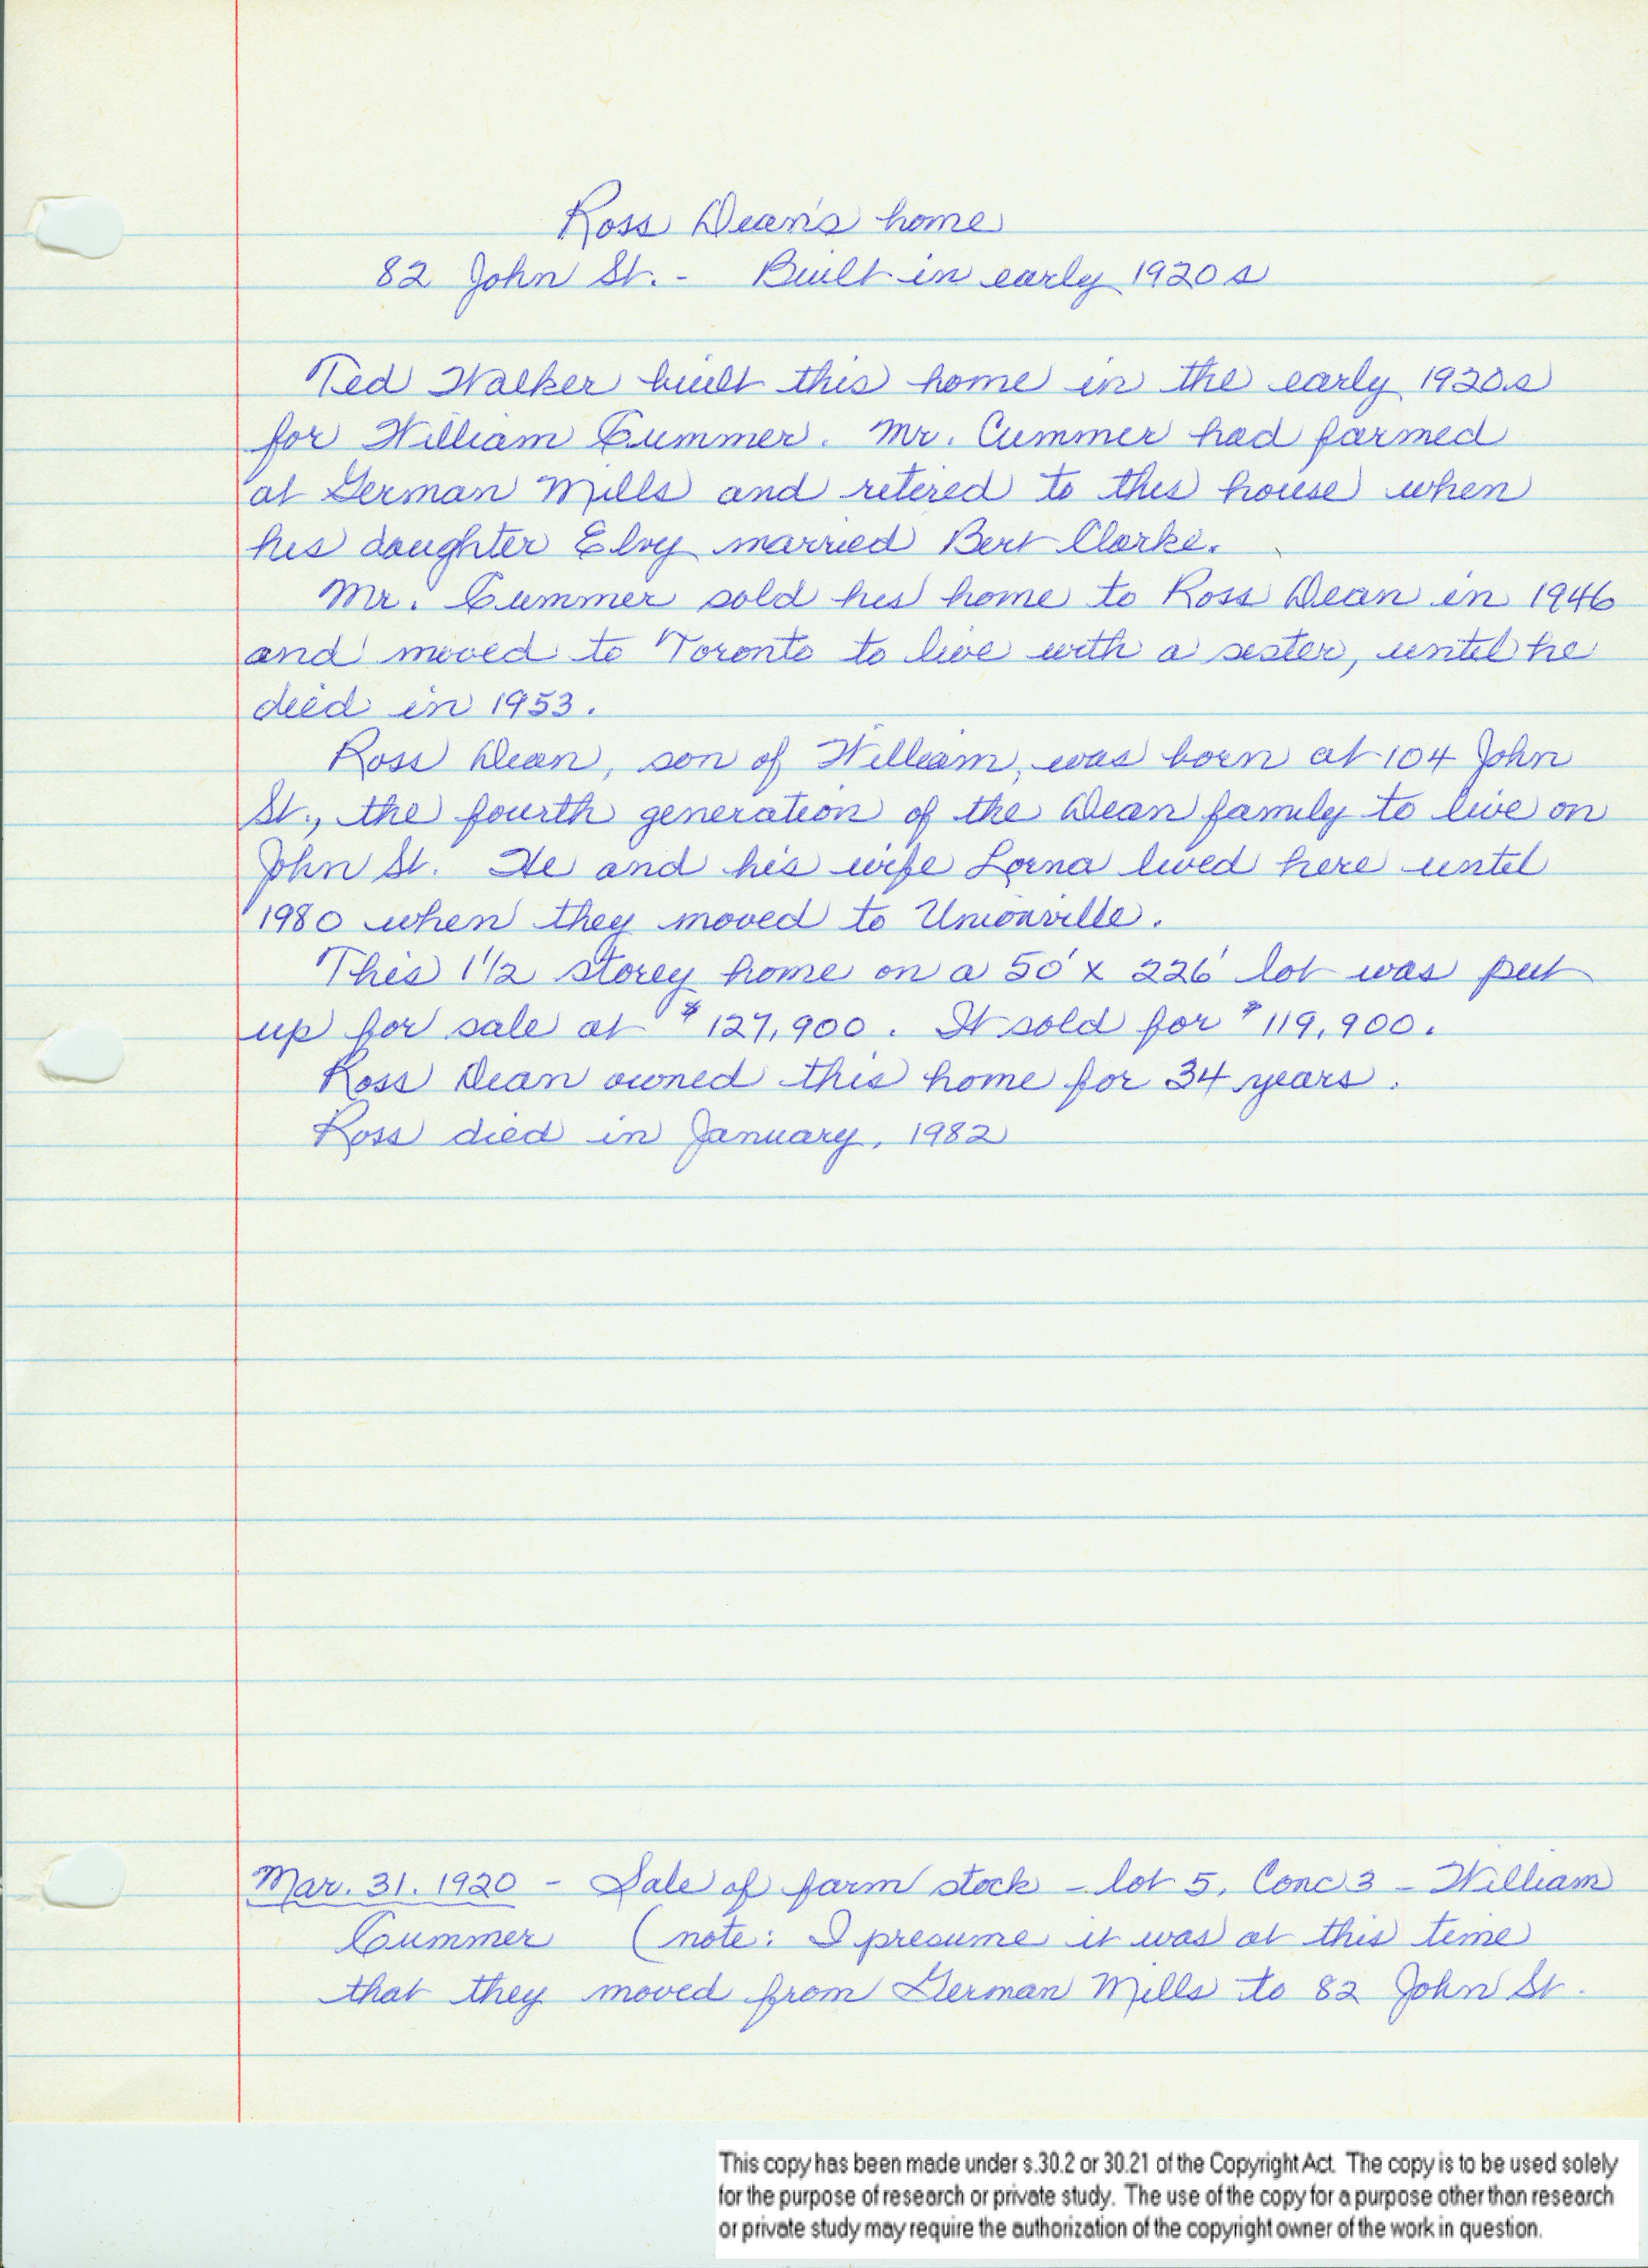 Ross Dean's home
82 John St. - Built in early 1920s
Ted Walker built this home in the early 1920s
for William Cummer. Mr. Cummer had farmed
at German Mills and retired to this house when
his daughter Elvy married Bert Clarke.
Mr. Cummer sold his home to Ross Dean in 1946
and moved to Toronto to live with a sister, until he
died in 1953.
Ross Dean, son of William, was born at 104 John
St., the fourth generation of the Dean family to live on
John St. He and his wife Lorna lived here until
1980 when they moved to Unionville.
This 1 1/2 storey home on a 50' x 226' lot was put
up for sale at $127,900. It sold for $119,900.
Ross Dean owned this home for 34 years.
Ross died in January, 1982
Mar. 31. 1920 - Sale of farm stock - lot 5, Conc 3 - William
Cummer (note: I presume it was at this time
that they moved from German Mills to 82 John St.
This copy has been made under s.30.2 or 30.21 of the Copyright Act. The copy is to be used solely
for the purpose of research or private study. The use of the copy for a purpose other than research
or private study may require the authorization of the copyright owner of the work in question.